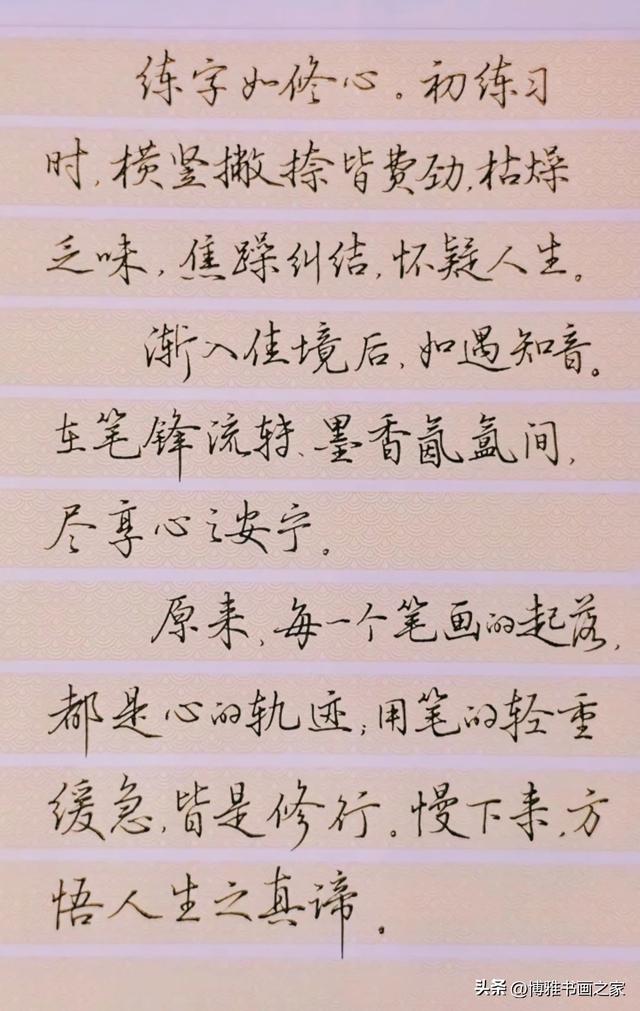 练字如修心。初练习
时,横竖撇捺皆费劲,枯燥
乏味,焦躁纠结,怀疑人生。
渐入佳境后,如遇知音。
在笔锋流转、墨香氤氲间,
尽享心之安宁。
原来,每一个笔画的起落,
都是心的轨迹;用笔的轻重
缓急,皆是修行。慢下来,方
悟人生之真谛。
头条 @博雅书画之家